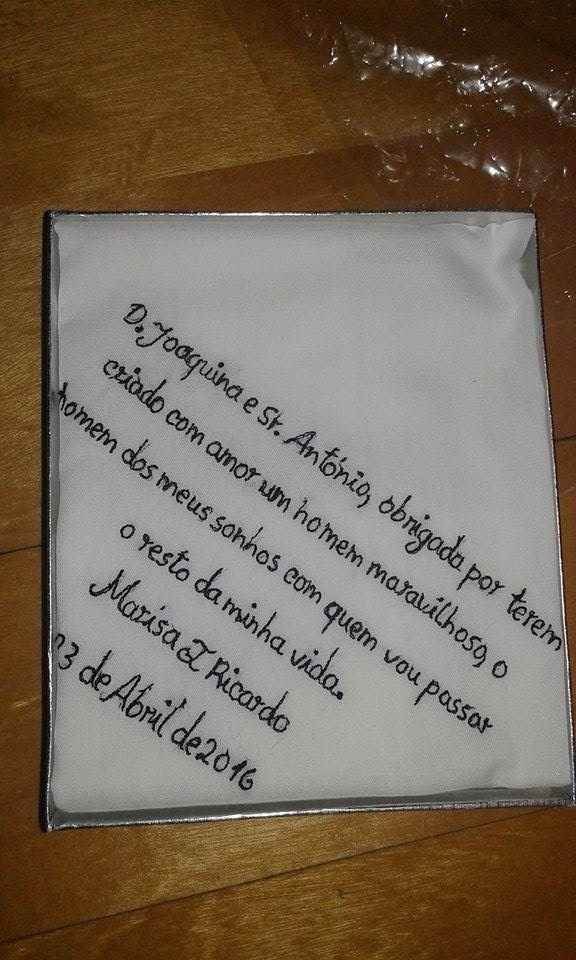 D. Joaquina e Sr. António, obrigada por terem
criado com amor um homem maravilhoso, o
homem dos meus sonhos com quem vou passar
o resto da minha vida.
Marisa & Ricardo
23 de Abril de 2016